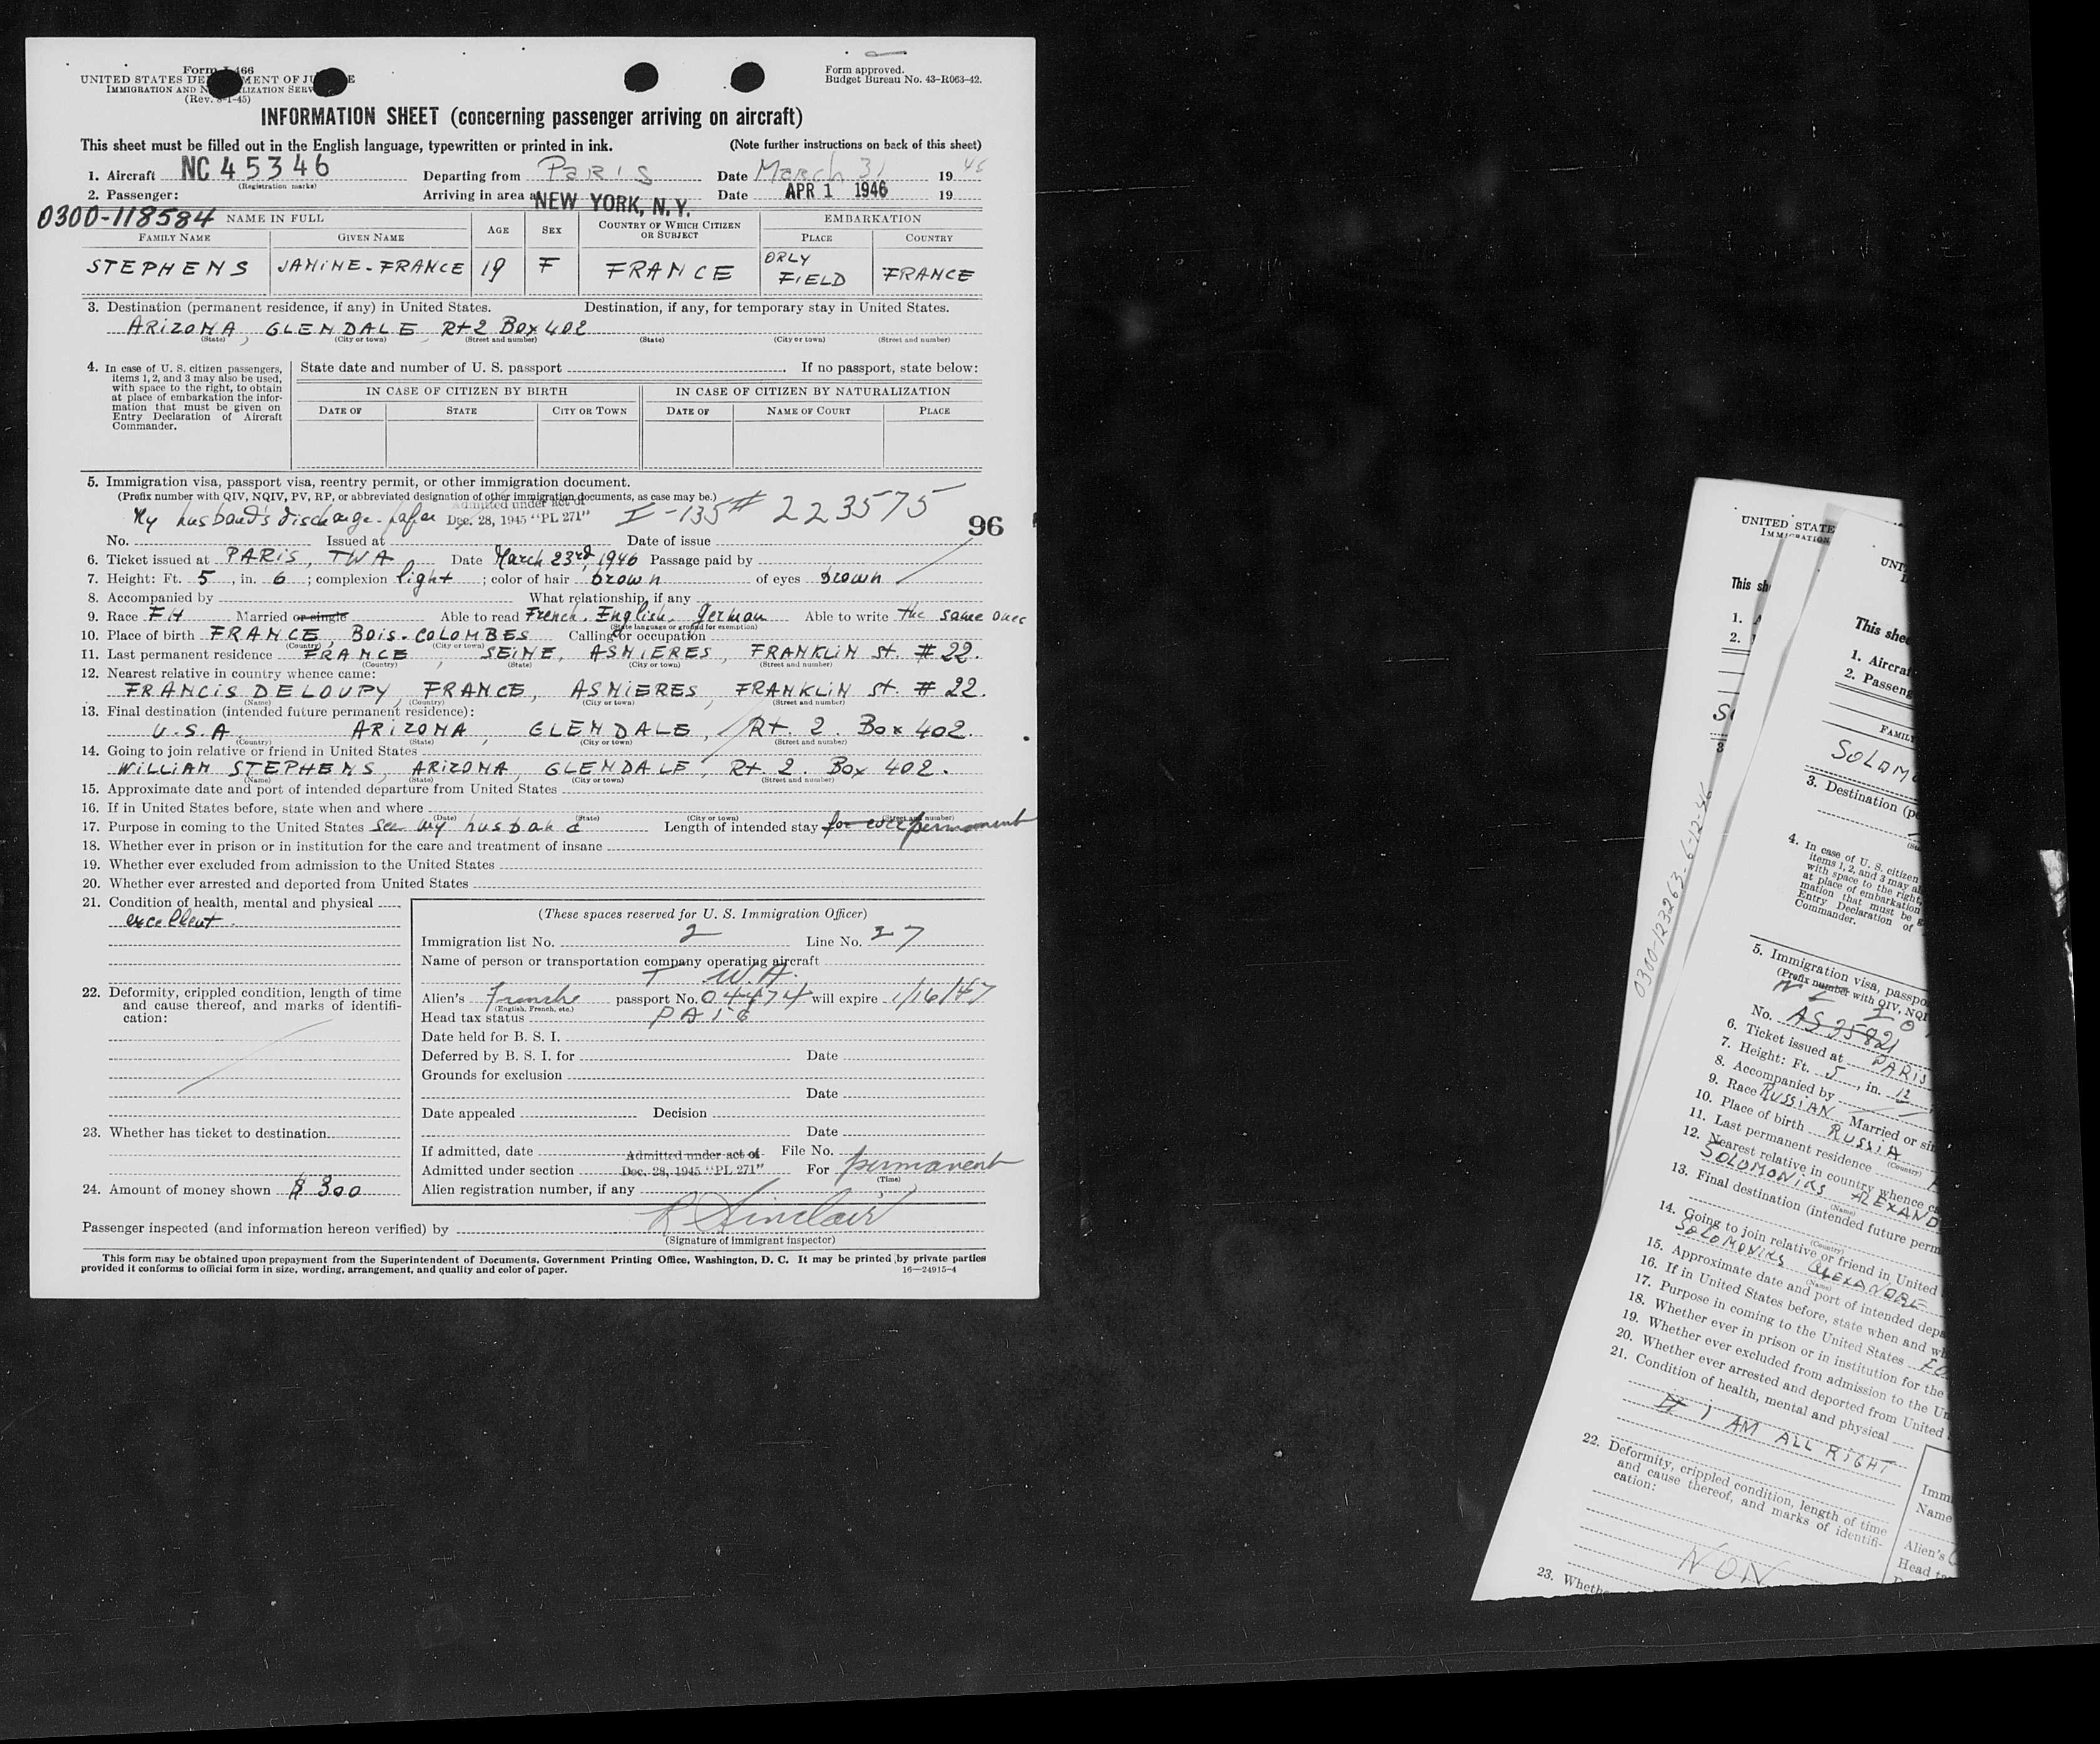 Form I-466
UNITED STATES DEPARTMENT OF JUSTICE
IMMIGRATION AND NATURALIZATION SERVICE
(Rev. 8-1-45)
Form approved.
Budget Bureau No. 43-R063-42.
INFORMATION SHEET (concerning passenger arriving on aircraft)
This sheet must be filled out in the English language, typewritten or printed in ink. (Note further instructions on back of this sheet)
1. Aircraft NC 45346 Departing from PARIS Date March 31 19 46
(Registration marks)
2. Passenger: Arriving in area a NEW YORK, N.Y. Date APR 1 1946 19
0300-118584 NAME IN FULL AGE SEX COUNTRY OF WHICH CITIZEN OR SUBJECT EMBARKATION
FAMILY NAME GIVEN NAME PLACE COUNTRY
STEPHENS JANINE-FRANCE 19 F FRANCE ORLY FIELD FRANCE
3. Destination (permanent residence, if any) in United States. Destination, if any, for temporary stay in United States.
ARIZONA, GLENDALE, Rt 2 Box 402
(State) (City or town) (Street and number) (State) (City or town) (Street and number)
4. In case of U. S. citizen passengers, items 1, 2, and 3 may also be used, with space to the right, to obtain at place of embarkation the information that must be given on Entry Declaration of Aircraft Commander.
State date and number of U. S. passport If no passport, state below:
IN CASE OF CITIZEN BY BIRTH IN CASE OF CITIZEN BY NATURALIZATION
DATE OF STATE CITY OR TOWN DATE OF NAME OF COURT PLACE
5. Immigration visa, passport visa, reentry permit, or other immigration document.
(Prefix number with QIV, NQIV, PV, RP, or abbreviated designation of other immigration documents, as case may be.)
My husband's discharge-paper Admitted under act of Dec. 28, 1945 "PL 271" I-135 # 223575
96
No. Issued at Date of issue
6. Ticket issued at PARIS, TWA Date March 23rd, 1946 Passage paid by
7. Height: Ft. 5, in. 6; complexion light; color of hair brown of eyes brown
8. Accompanied by What relationship, if any
9. Race FH Married or single Able to read French, English, German Able to write the same ones
(State language or ground for exemption)
10. Place of birth FRANCE, BOIS-COLOMBES Calling or occupation
(Country) (City or town)
11. Last permanent residence FRANCE, SEINE, ASNIERES, FRANKLIN St. # 22.
(Country) (State) (City or town) (Street and number)
12. Nearest relative in country whence came:
FRANCIS DELOUPY, FRANCE, ASNIERES, FRANKLIN St. # 22.
(Name) (Country) (City or town) (Street and number)
13. Final destination (intended future permanent residence):
U.S.A. ARIZONA, GLENDALE, Rt. 2. Box 402.
(Country) (State) (City or town) (Street and number)
14. Going to join relative or friend in United States
WILLIAM STEPHENS, ARIZONA, GLENDALE, Rt. 2. Box 402.
(Name) (State) (City or town) (Street and number)
15. Approximate date and port of intended departure from United States
16. If in United States before, state when and where
(Date) (State) (City or town) (Street and number)
17. Purpose in coming to the United States see my husband Length of intended stay for ever permanent
18. Whether ever in prison or in institution for the care and treatment of insane
19. Whether ever excluded from admission to the United States
20. Whether ever arrested and deported from United States
21. Condition of health, mental and physical
excellent.
22. Deformity, crippled condition, length of time and cause thereof, and marks of identification:
23. Whether has ticket to destination
24. Amount of money shown $ 300
(These spaces reserved for U. S. Immigration Officer)
Immigration list No. 2 Line No. 27
Name of person or transportation company operating aircraft
T W.A.
Alien's Franche passport No. 04474 will expire 1/16/47
(English, French, etc.)
Head tax status PAID
Date held for B. S. I.
Deferred by B. S. I. for Date
Grounds for exclusion
Date
Date appealed Decision
Date
If admitted, date Admitted under act of File No.
Admitted under section Dec. 28, 1945 "PL 271" For permanent
(Time)
Alien registration number, if any
Passenger inspected (and information hereon verified) by R Sinclair
(Signature of immigrant inspector)
This form may be obtained upon prepayment from the Superintendent of Documents, Government Printing Office, Washington, D. C. It may be printed by private parties
provided it conforms to official form in size, wording, arrangement, and quality and color of paper. 16—24915-4
UNITED STATE
IMMIGRATION
This sh
1. A
2.
0300-123263-6-12-46
UNI
This shee
1. Aircraf
2. Passeng
FAMIL
SOLOMO
3. Destination (pe
4. In case of U. S. citizen
items 1, 2, and 3 may al
with space to the right,
at place of embarkation
mation that must be g
Entry Declaration of
Commander.
5. Immigration visa, passpo
(Prefix number with QIV, NQI
No. AS 25821
6. Ticket issued at PARIS
7. Height: Ft. 5, in. 12
8. Accompanied by
9. Race RUSSIAN Married or sin
10. Place of birth RUSSIA
(Country)
11. Last permanent residence
12. Nearest relative in country whence c
SOLOMONIKS ALEXAND
(Name)
13. Final destination (intended future perm
(Country)
14. Going to join relative or friend in United
SOLOMONIKS ALEXANDRE
(Name)
15. Approximate date and port of intended depa
16. If in United States before, state when and wh
17. Purpose in coming to the United States
18. Whether ever in prison or in institution for the
19. Whether ever excluded from admission to the Un
20. Whether ever arrested and deported from United
21. Condition of health, mental and physical
I AM ALL RIGHT
22. Deformity, crippled condition, length of time
and cause thereof, and marks of identifi-
cation:
NON
23. Whethe
Imm
Name
Alien's
Head ta